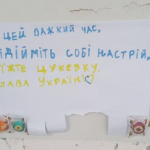 ЦЕЙ ВАЖКИЙ ЧАС,
ПІДІЙМІТЬ СОБІ НАСТРІЙ,
ЇЖТЕ ЦУКЕРКУ.
СЛАВА УКРАЇНІ